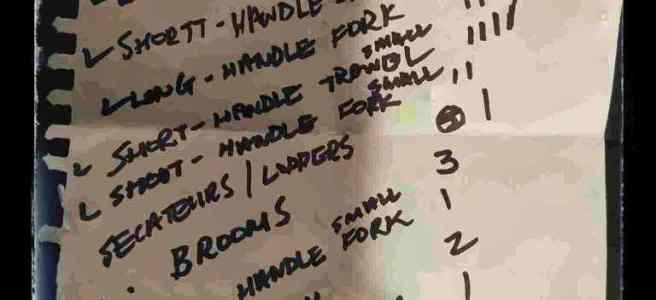 SHORTT-HANDLE
LONG-HANDLE FORK IIII
SHORT-HANDLE SMALL TROWEL II
SHORT-HANDLE SMALL FORK I
SECATEURS/LOPPERS 3
BROOMS 1
HANDLE SMALL FORK 2